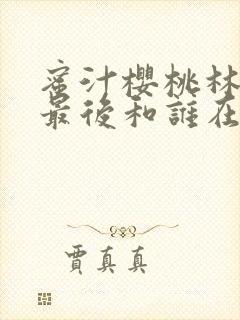 蜜汁櫻桃林
最後和誰在
賈真真